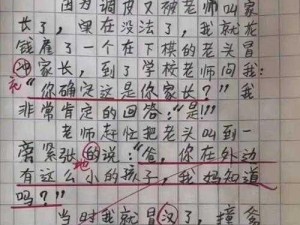 因为调皮又被老师叫家
长了，实在没法了，我就花
钱雇了一个在下棋的老头冒
冲家长，到了学校老师问我：
充
"你确定这是你家长？"我
非常肯定的回答："是！"
老师赶忙把老头叫到一
旁紧张的说："爸，你在外边
地
有这么小的孩子，我妈知道
吗？"
当时我就冒汉了，撞